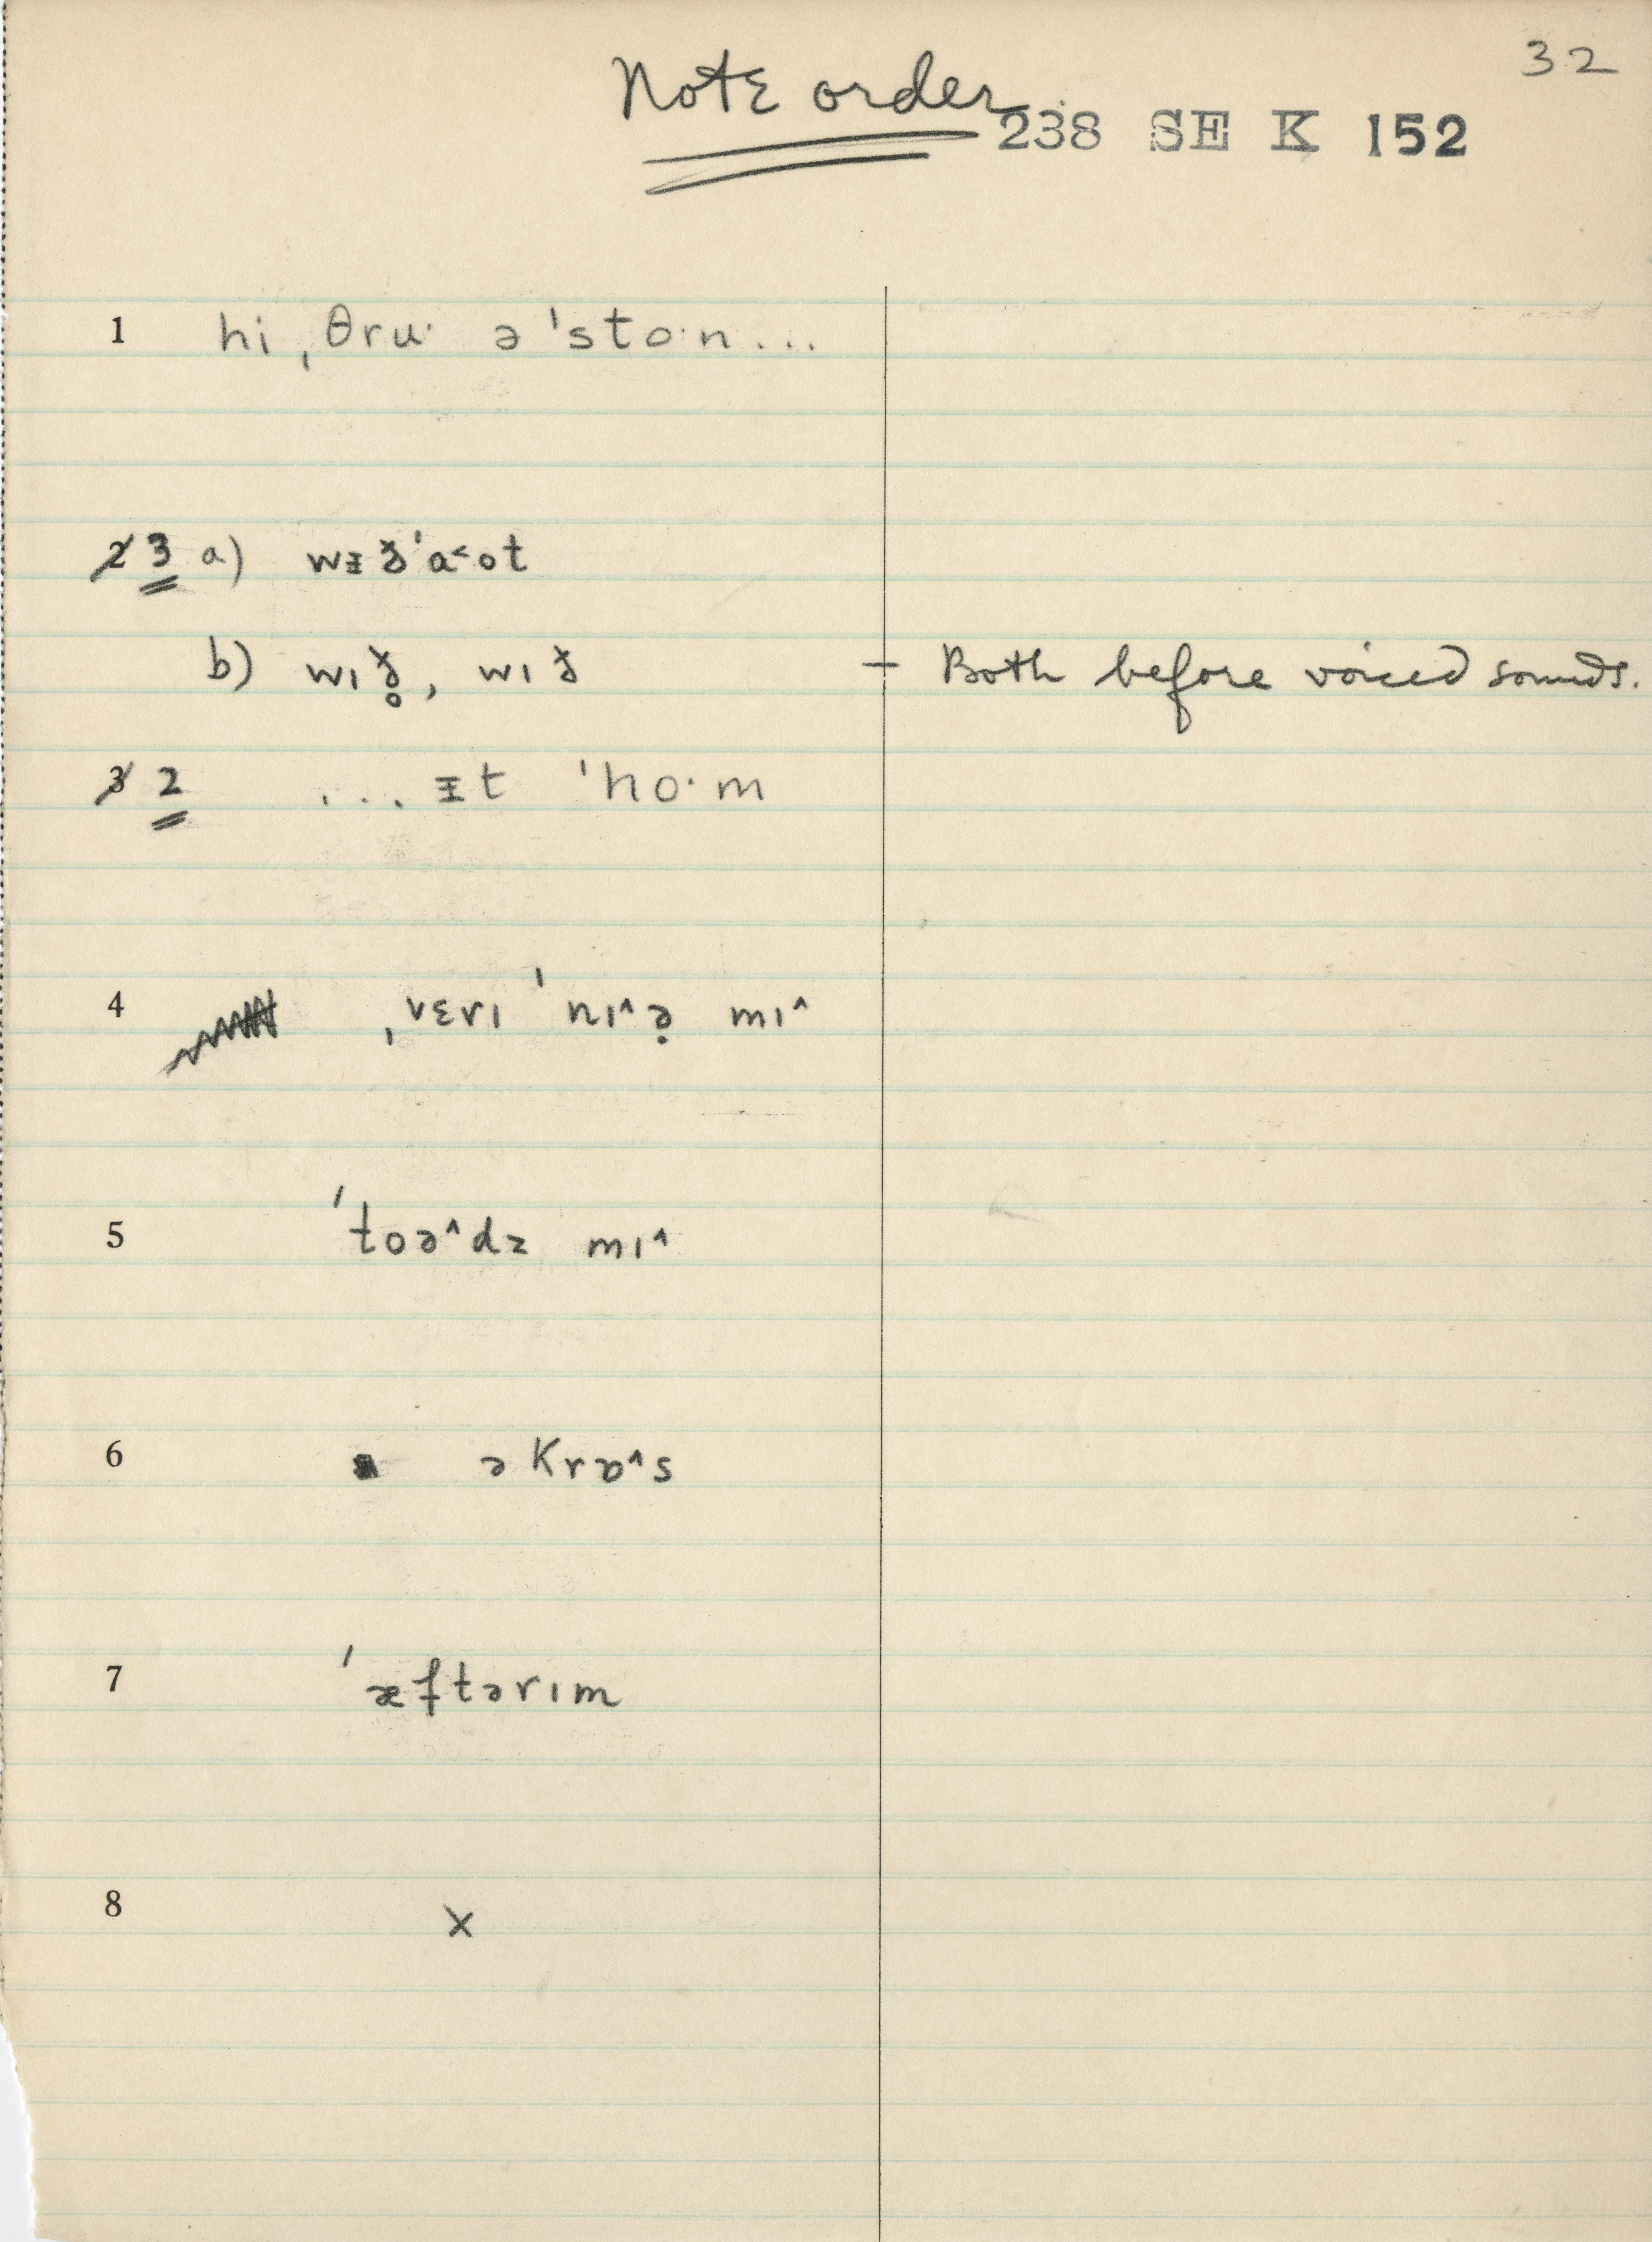 32
Note order
238 SE K 152
1 hi ˌθruˑ ə ˈstoˑn...
2 3 a) wᵻðˈa˂ot
b) wɪð̥, wɪð – Both before voiced sounds.
3 2 ... ᵻt ˈhoˑm
4 ˌvɛrɪ ˈnɪ^ə̣ mɪ^
5 ˈtoə^dz mɪ^
6 əkrɒ^s
7 ˈæftərɪm
8 x